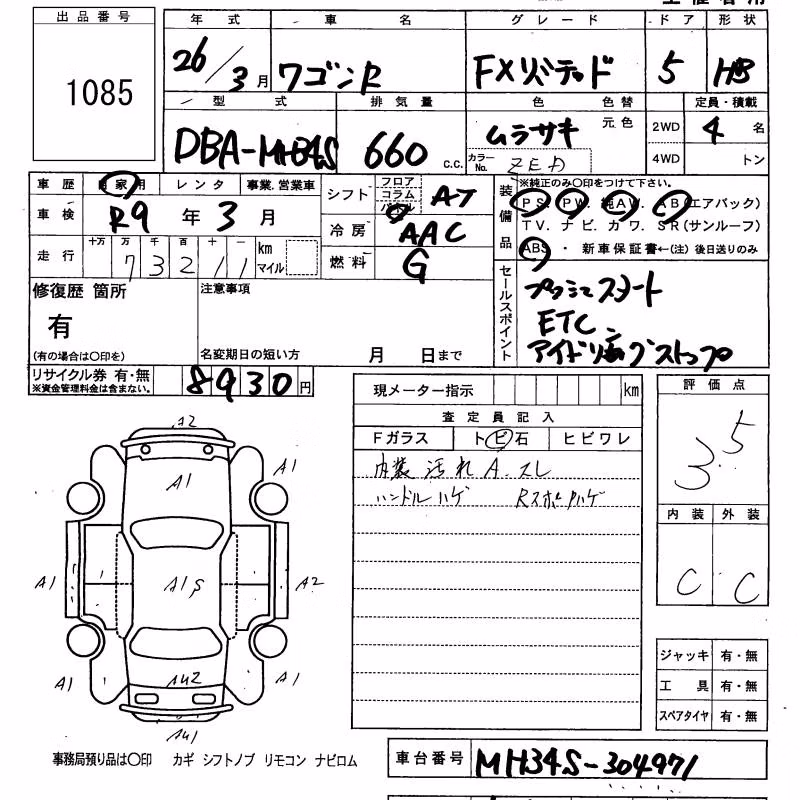 出品番号
1085
年式 車名 グレード ドア 形状
26/3月 ワゴンR FXリミテッド 5 HB
型式 排気量 色 色替 定員・積載
DBA-MH34S 660 c.c. ムラサキ 元色 2WD 4名
カラーNo. ZED 4WD トン
車歴 自家用 レンタ 事業.営業車
車検 R9年3月
走行 十万 万 千 百 十 一 km マイル
73211
シフト フロア コラム AT
冷房 AAC
燃料 G
装備品
※純正のみ○印をつけて下さい。
PS. PW. 純AW. AB(エアバック)
TV. ナビ. カワ. SR(サンルーフ)
ABS・新車保証書←(注)後日送りのみ
修復歴 箇所
有
(有の場合は○印を)
注意事項
名変期日の短い方 月 日まで
セールスポイント
プッシュスタート
ETC
アイドリングストップ
リサイクル券 有・無
※資金管理料金は含まない。
8930円
現メーター指示 km
査定員記入
Fガラス ト ビ 石 ヒビワレ
内装 汚れ A.スレ
ハンドルハゲ
評価点
3.5
内装 外装
C C
A2
A1
A1
A1
A1
A1S
A2
A1
AU2
A1
AU1
ジャッキ 有・無
工具 有・無
スペアタイヤ 有・無
事務局預り品は○印 カギ シフトノブ リモコン ナビロム
車台番号 MH34S-304971